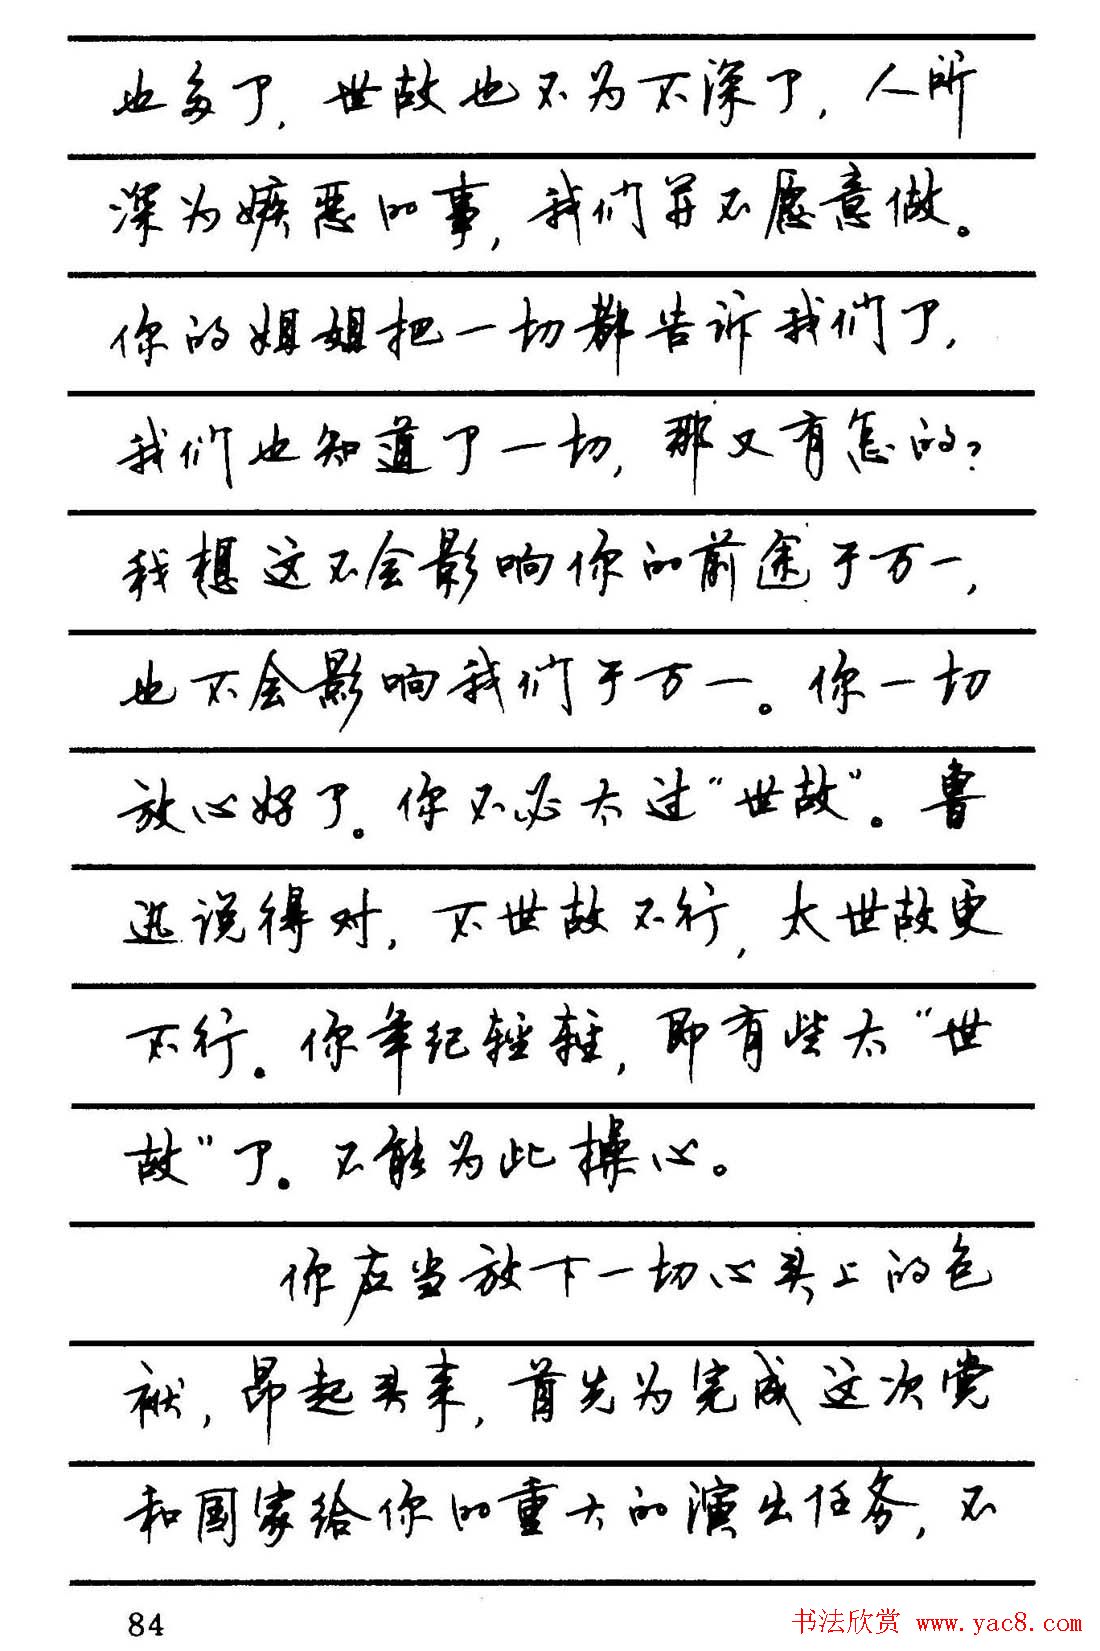 也多了，世故也不为不深了，人所
深为嫉恶的事，我们并不愿意做。
你的姐姐把一切都告诉我们了，
我们也知道了一切，那又有怎的？
我想这不会影响你的前途于万一，
也不会影响我们于万一。你一切
放心好了。你不必太过“世故”。鲁
迅说得对，不世故不行，太世故更
不行。你年纪轻轻，即有些太“世
故”了。不能为此操心。
你应当放下一切心头上的包
袱，昂起头来，首先为完成这次党
和国家给你的重大的演出任务，不
84
书法欣赏 www.yac8.com